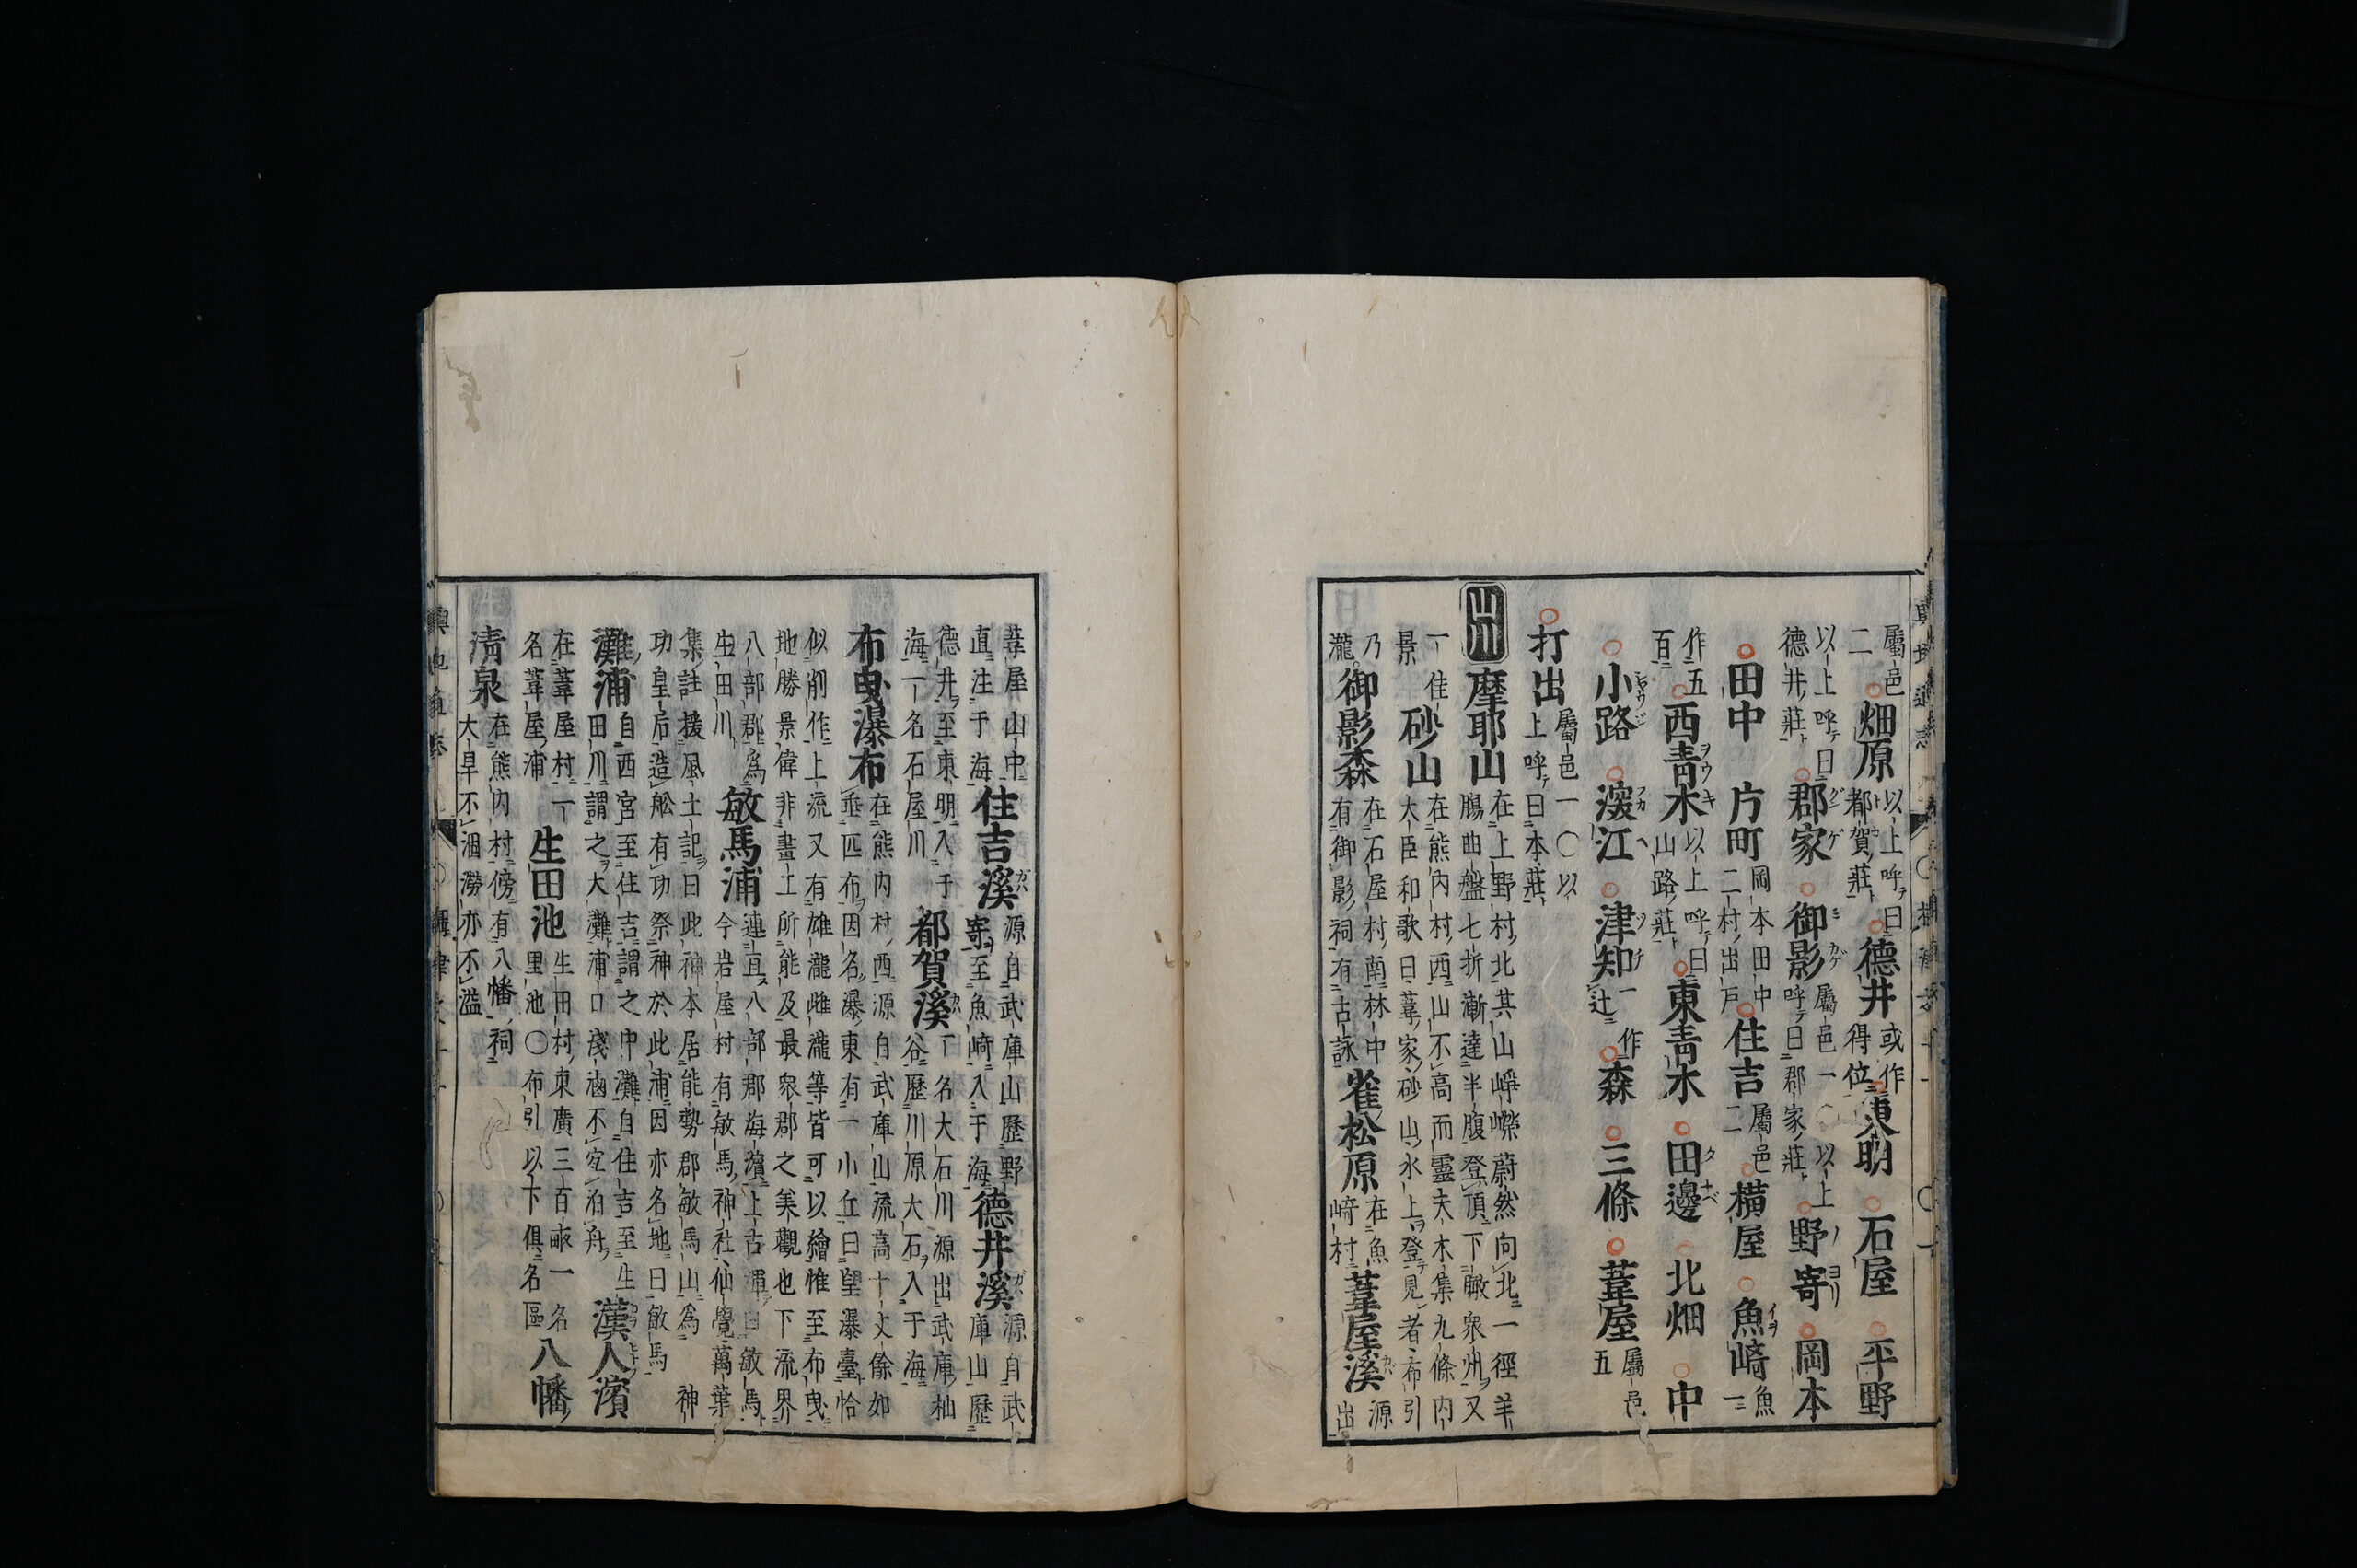 屬邑二 畑原 以上呼曰都賀莊 德井 或作得位 東明 石屋 平野
以上呼曰德井莊 郡家 御影 屬邑一〇以上呼曰郡家莊 野寄 岡本
田中 片町 岡本田中二村出戸 住吉 屬邑二 橫屋 魚﨑 魚一
作五百 西青木 以上呼曰山路莊 東青木 田邊 北畑 中
小路 深江 津知 一作辻 森 三條 葦屋 屬邑五
打出 屬邑一〇以上呼曰本莊
山 摩耶山 在上野村北其山崢嶸蔚然向北一徑羊
腸曲盤七折漸達半腹登頂下瞰衆州又
一佳景 砂山 在熊内村西山不高而靈夫木集九條内
大臣和歌曰葦家砂山水上登見者布引
乃瀧 御影森 在石屋村南林中有御影祠有古詠 雀松原 在魚﨑村 葦屋溪 源出
葦屋山中直注于海 住吉溪 源自武庫山歷野寄至魚﨑入于海 德井溪 源自武庫山歷
德井至東明入于海一名石屋川 都賀溪 一名大石川源出武庫杣谷歷川原大石入于海
布曳瀑布 在熊内村西源自武庫山流高十丈餘如
垂匹布因名瀑東有一小丘曰望瀑臺恰
似削作上流又有雄瀧雌瀧等皆可以繪惟至布曳
地勝景偉非畫工所能及最衆郡之美觀也下流界
八部郡爲生田川 敏馬浦 連亘八部郡海濱上古渾曰敏馬
今岩屋村有敏馬神社仙覺萬葉
集註援風土記曰此神本居能勢郡敏馬山爲神
功皇后造舩有功祭神於此浦因亦名地曰敏馬
灘浦 自西宮至住吉謂之中灘自住吉至生
田川謂之大灘浦口淺滷不宜泊舟 漢人濱
在葦屋村一名葦屋浦 生田池 生田村東廣三百畝一名里池〇布引以下俱名區 八幡
清泉 在熊内村傍有八幡祠
大旱不涸澇亦不溢